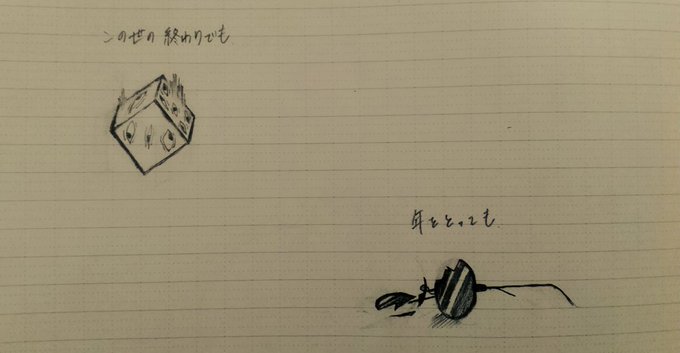 この世の終わりでも
年をとっても